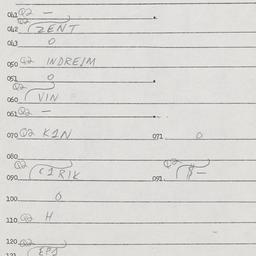 041 Q2 —
042 Q2 ZENT
043 0
050 Q2 INDREIM
051 0
060 Q2 VIN
061 Q2 —
070 Q2 K1N 071 0
080
090 Q2 C1RIK 091 Q2 $—
100 0
110 Q2 H
120 Q2
121 EPS